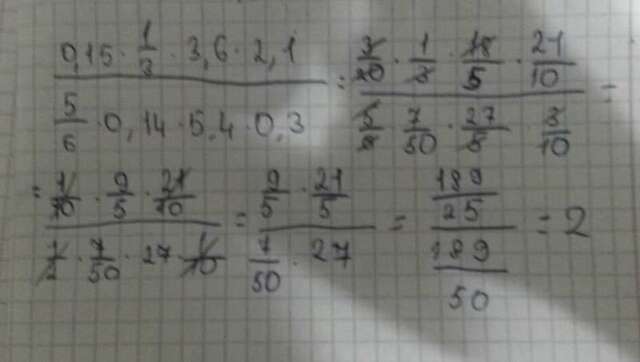 0,15 · 1/3 · 3,6 · 2,1 / 5/6 · 0,14 · 5,4 · 0,3 = 3/20 · 1/3 · 18/5 · 21/10 / 5/6 · 7/50 · 27/5 · 3/10 =
= 1/10 · 9/5 · 21/10 / 1/2 · 7/50 · 27 · 1/10 = 9/5 · 21/5 / 7/50 · 27 = 189/25 / 189/50 = 2